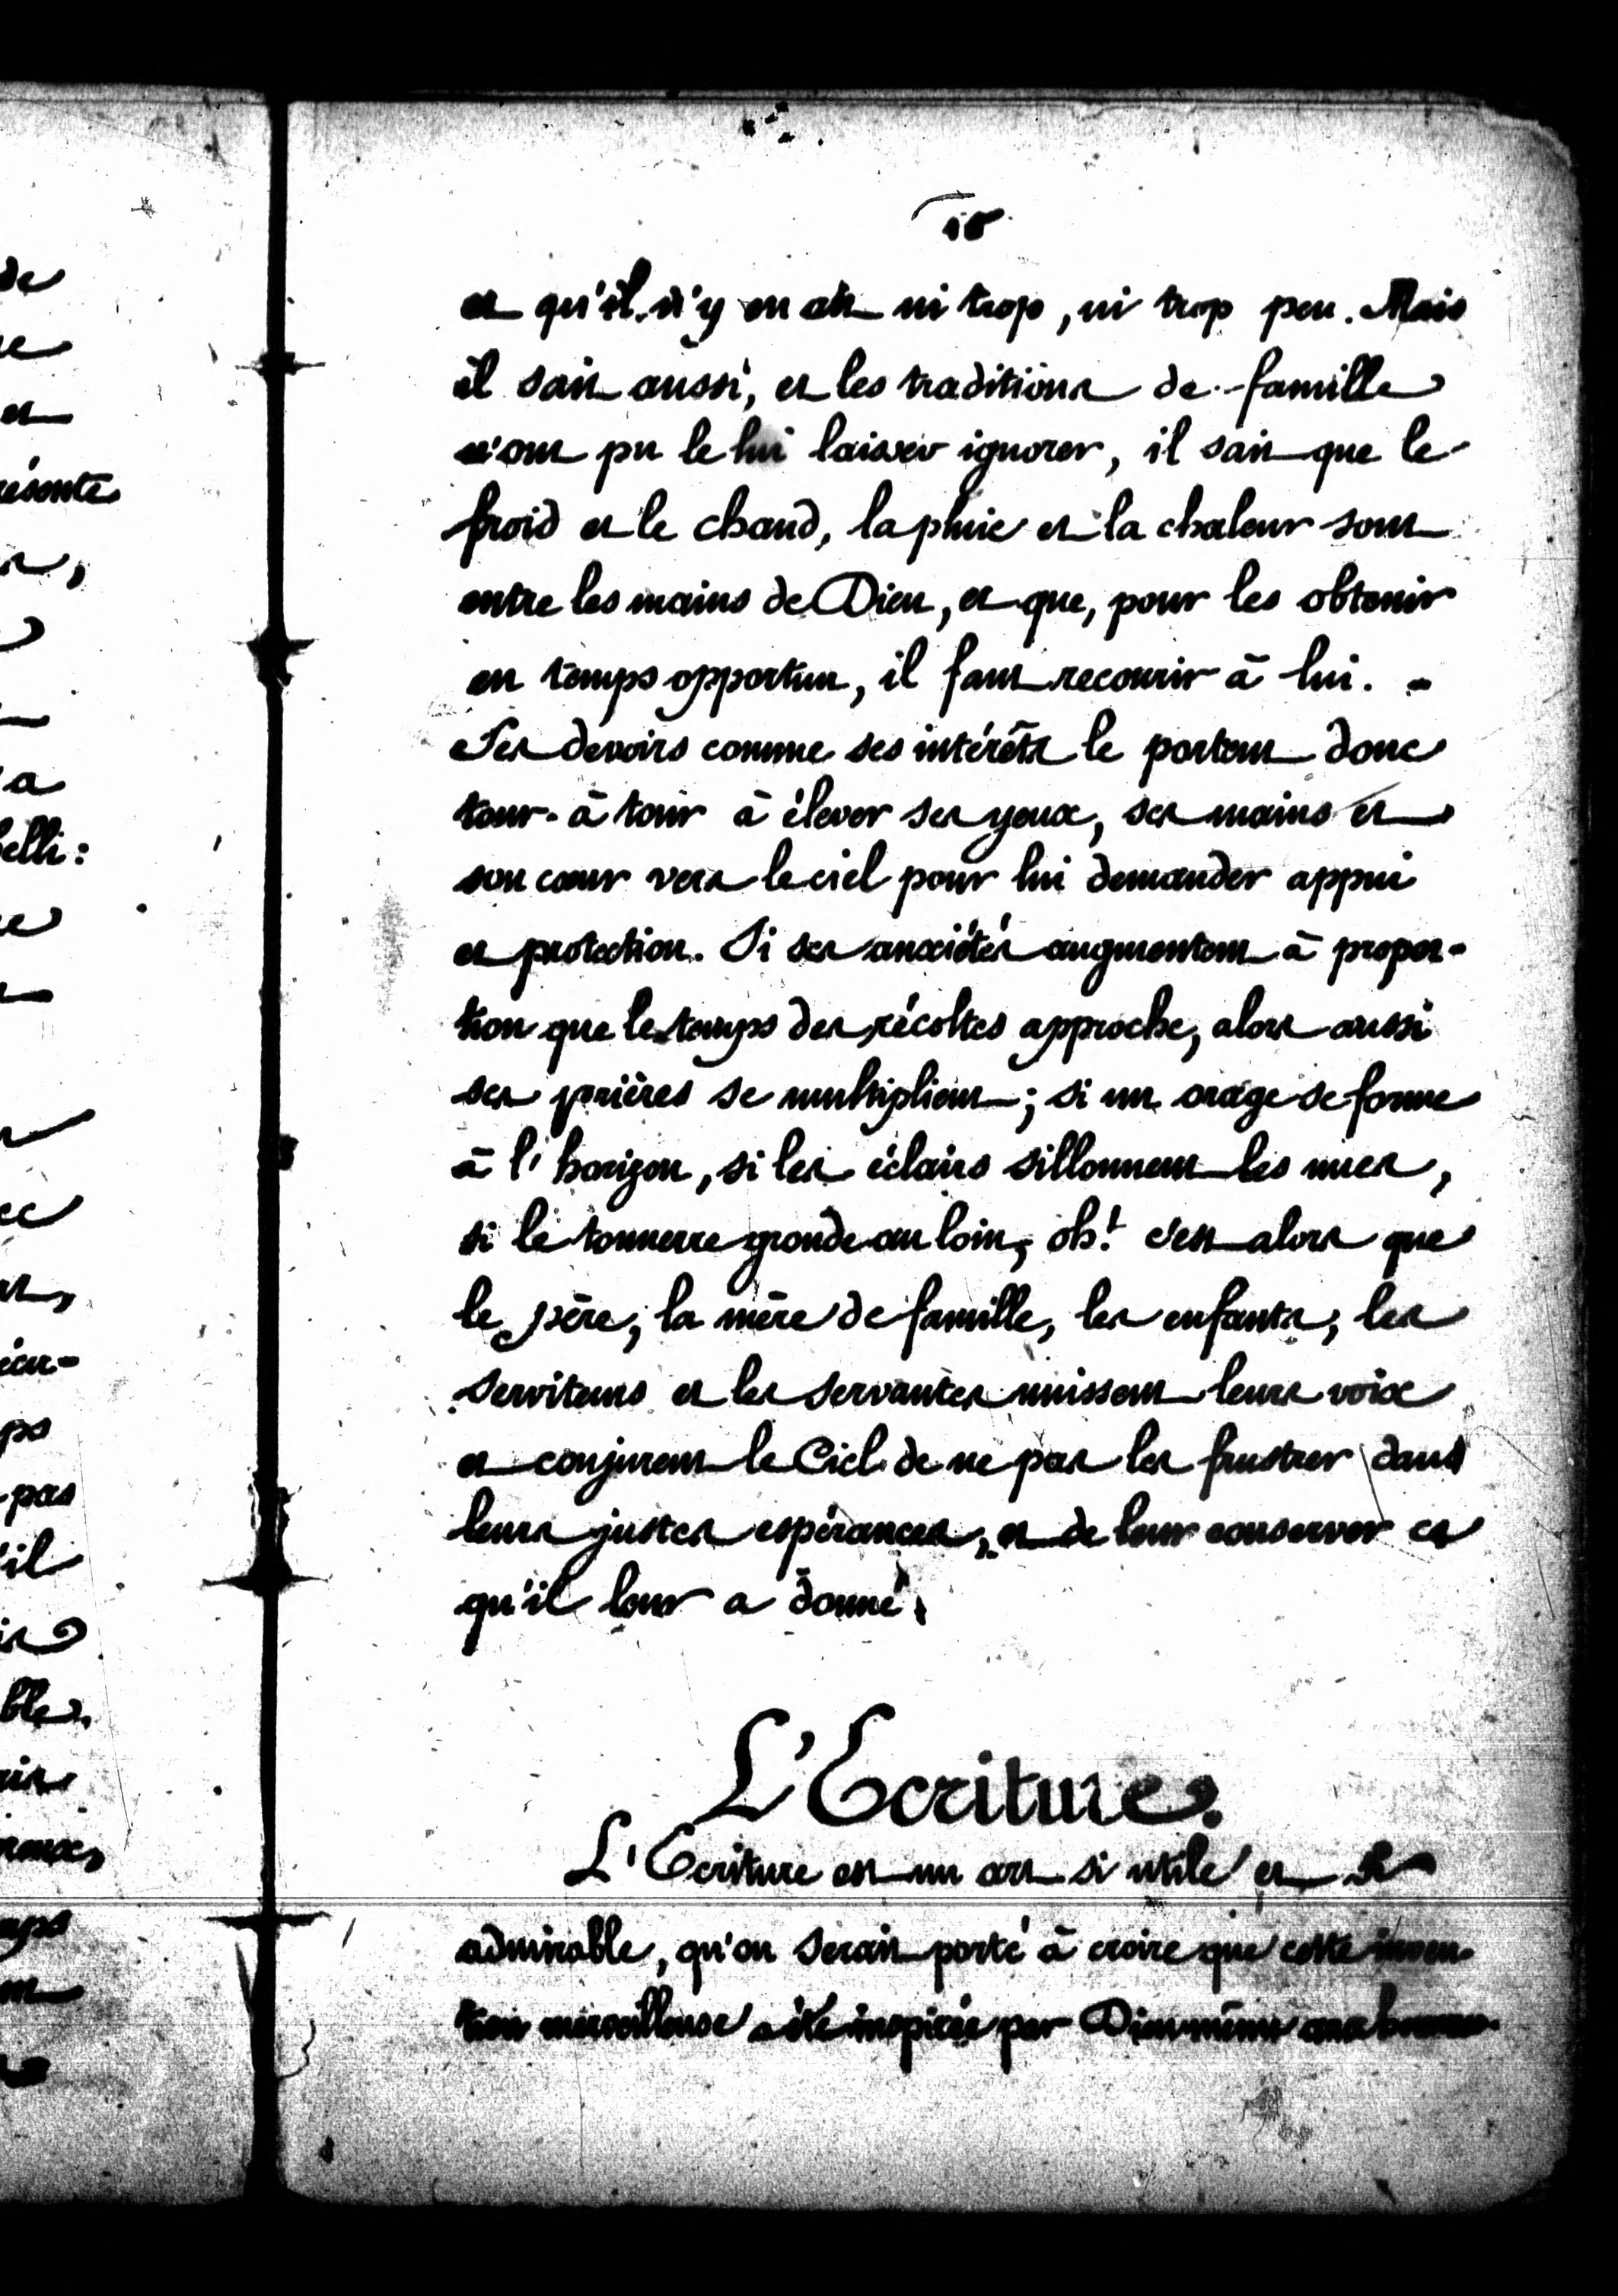 18
et qu'il n'y en ait ni trop, ni trop peu. Mais
il sait aussi, et les traditions de famille
n'ont pu le lui laisser ignorer, il sait que le
froid et le chaud, la pluie et la chaleur sont
entre les mains de Dieu, et que, pour les obtenir
en temps opportun, il faut recourir à lui. -
Ses devoirs comme ses intérêts le portent donc
tour-à tour à élever ses yeux, ses mains et
son cœur vers le ciel pour lui demander appui
et protection. Si ses anxiétés augmentent à propor-
tion que le temps des récoltes approche, alors aussi
ses prières se multiplient; si un orage se forme
à l'horizon, si les éclairs sillonnent les nues,
si le tonnerre gronde au loin, oh! c'est alors que
le père, la mère de famille, les enfants, les
serviteurs et les servantes unissent leurs voix
et conjurent le Ciel de ne pas les frustrer dans
leurs justes espérances, et de leur conserver ce
qu'il leur a donné.
L'Ecriture.
L'Ecriture est un art si utile et si
admirable, qu'on serait porté à croire que cette inven-
tion merveilleuse a été inspirée par Dieu même
de
et
résente
a
belli:
ps
pas
'il
ble.